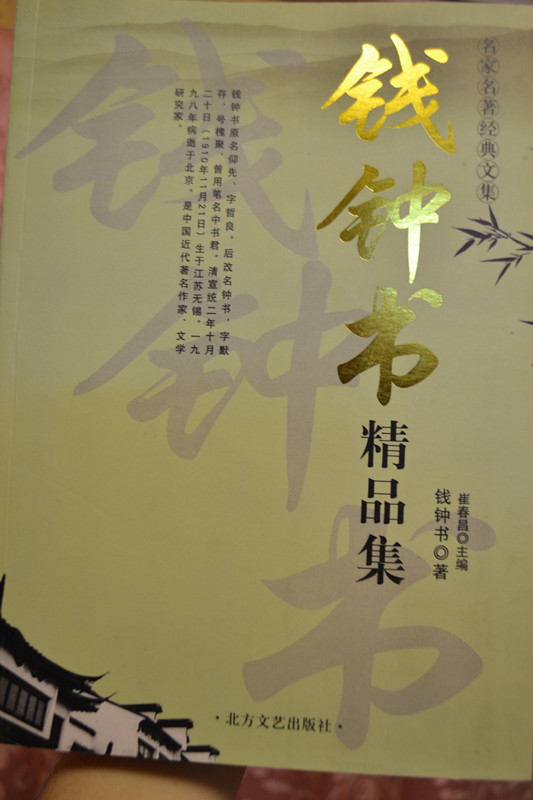 名家名著经典文集
钱钟书
精品集
崔春昌◎主编
钱钟书◎著
钱钟书原名仰先、字哲良。后改名钟书，字默
存，号槐聚、曾用笔名中书君。清宣统二年十月
二十日（1910年11月21日）生于江苏无锡。一九
九八年病逝于北京。是中国近代著名作家、文学
研究家。
钱钟书
·北方文艺出版社·